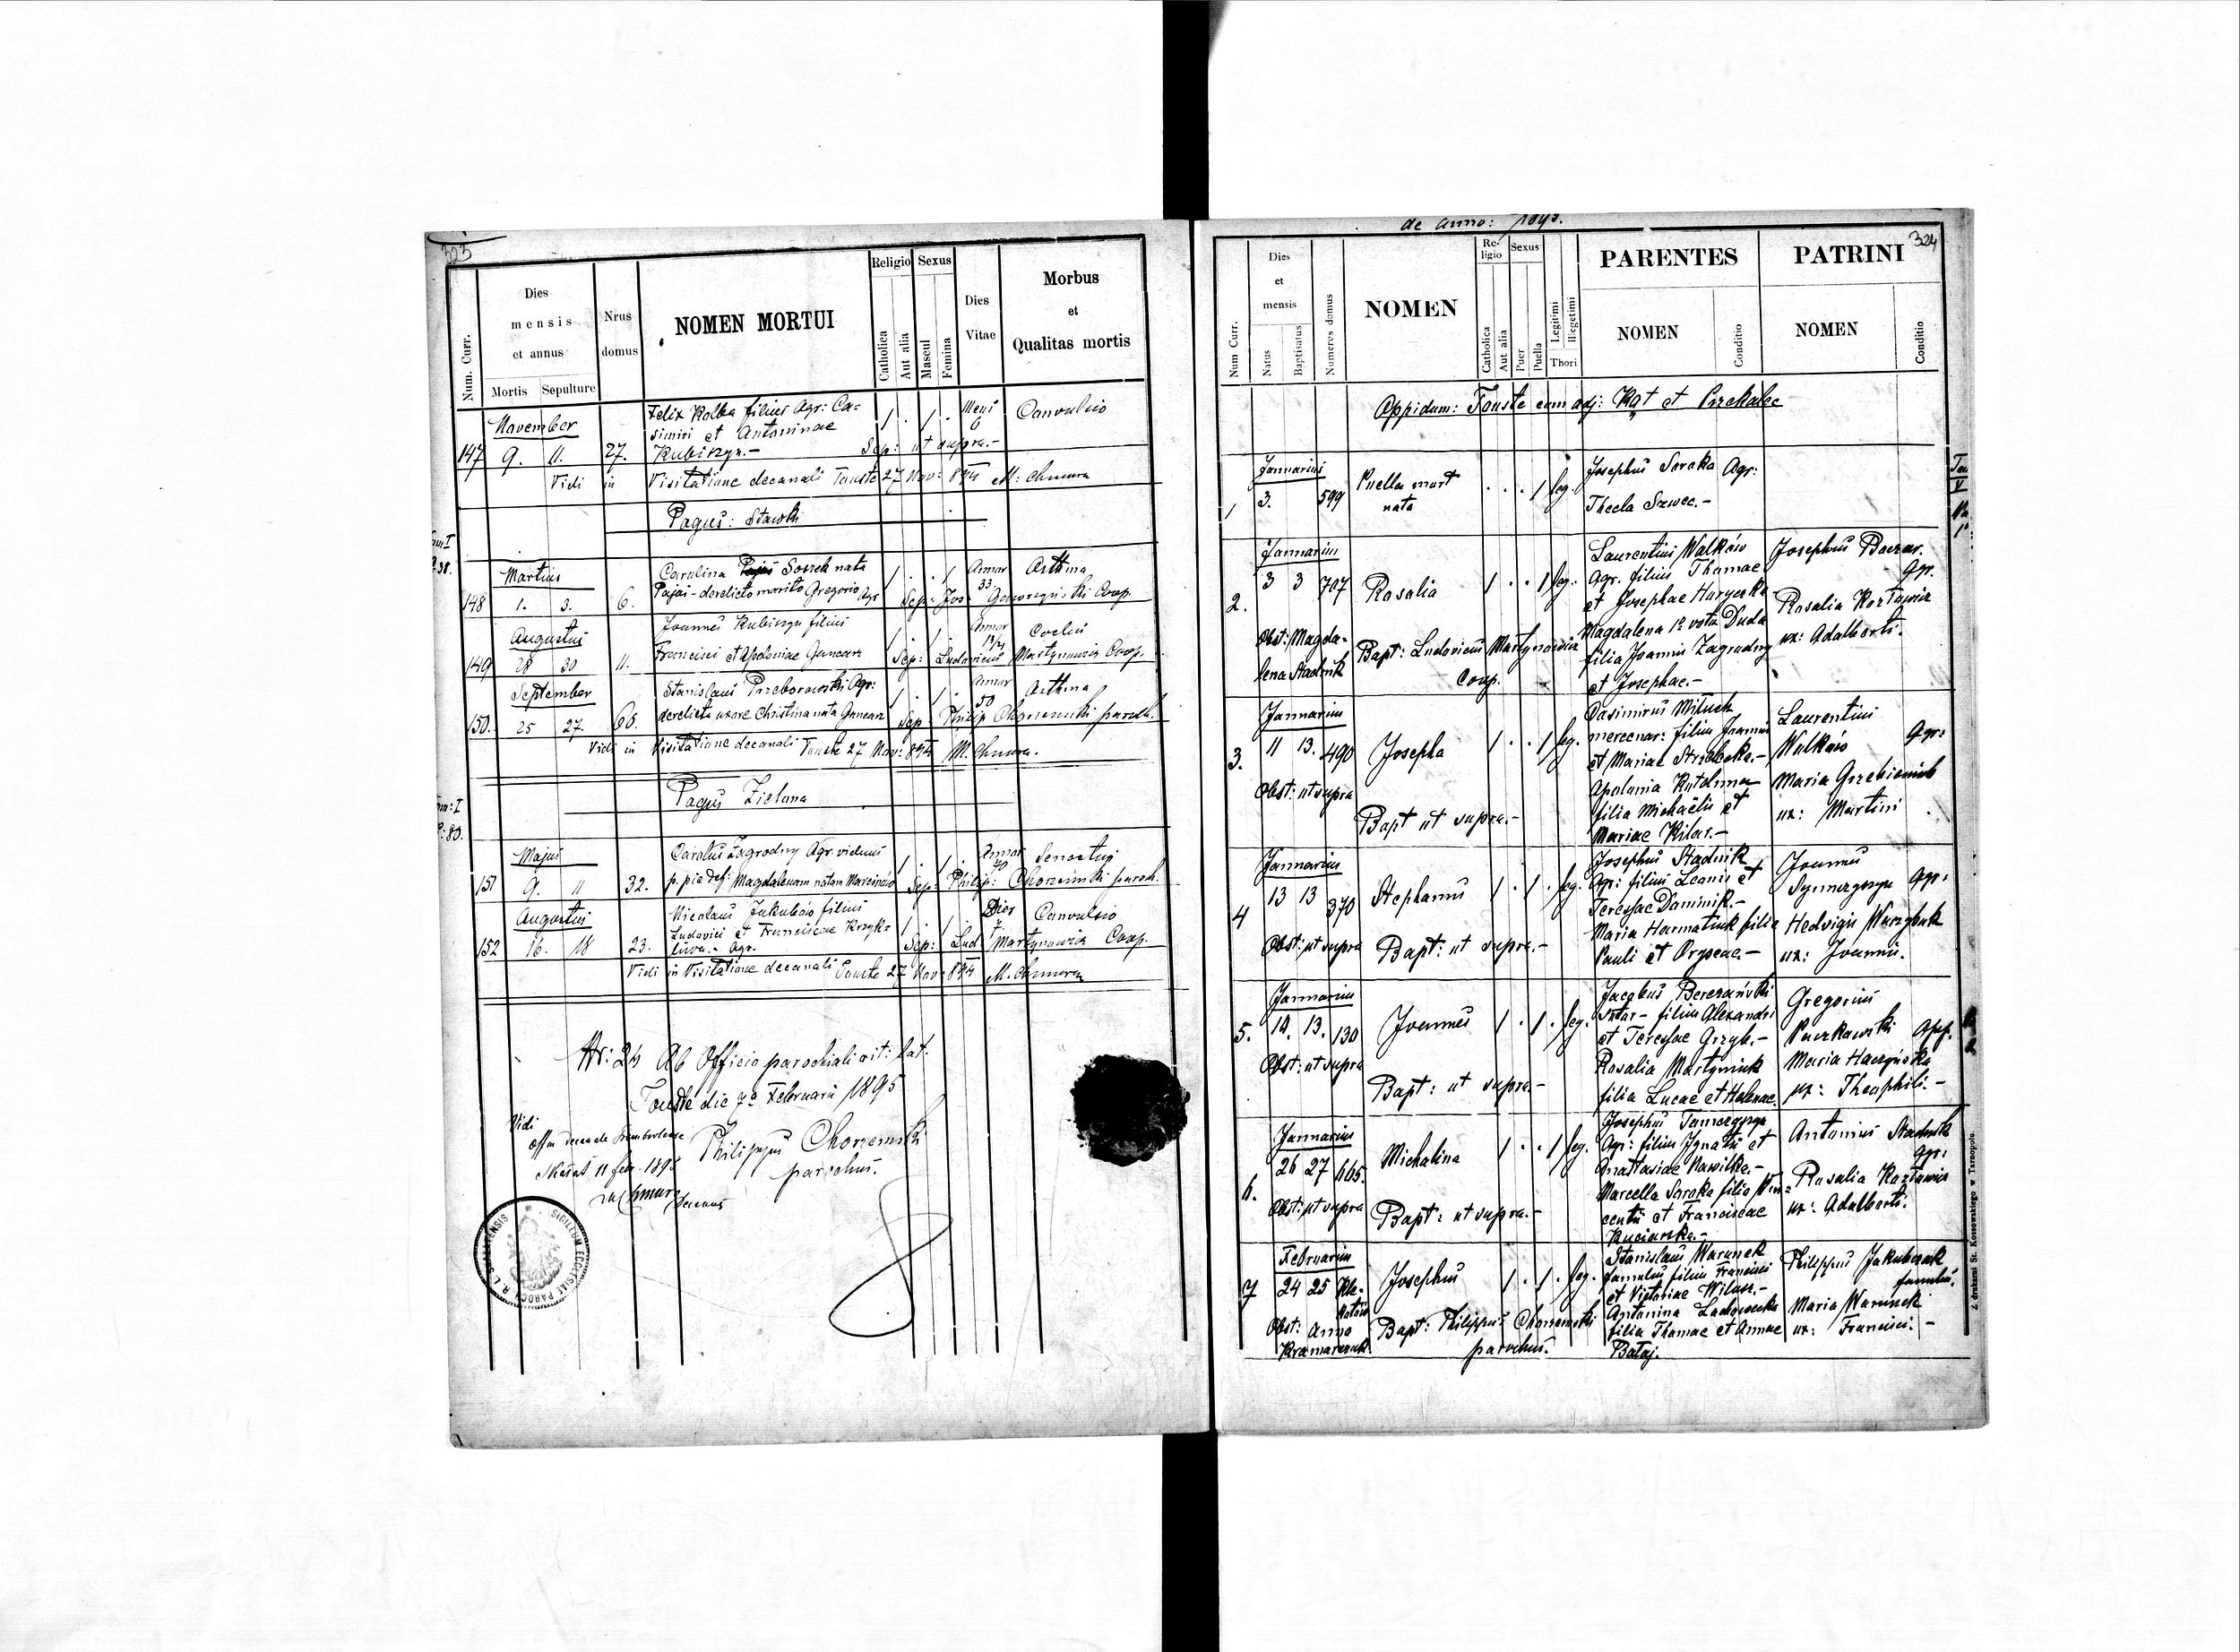 323
Num. Curr.
Dies mensis et annus
Mortis Sepulture
Nrus domus
NOMEN MORTUI
Religio
Catholica
Aut alia
Sexus
Mascul
Femina
Dies Vitae
Morbus et Qualitas mortis
November
147 9. 11. 27.
Felix Kolba filius Agr: Ca=
simiri et Antoninae
Kubiszyn.-
1 . 1 . Mens 6 Convulsio
Sep: ut supra.-
Vidi in Visitatione decanali Touste 27 Nov: 894 M: Chmura
Pagus: Stawki
Martius
148 1. 3. 6.
Carolina Sossek nata
Pajai - derelicto marito Gregorio Agr
1 . . 1 Annor 33 Asthma
Sep: Jos: Coop.
Augustus
149 28 30 11.
Joannes Kubiszyn filius
Francisci et Apoloniae Guncarz
1 . 1 . Annor
Sep: Ludovicus Martynowicz Coop.
September
150. 25 27. 60.
Stanislaus Przeborowski Agr:
derelicta uxore Christina nata Guncarz
1 . 1 . Annor 50 Asthma
Sep: Philip Chorzemski paroch.
Vidi in Visitatione decanali Touste 27 Nov: 894 M. Chmura.
Pagus Zielona
Majus
151 9. 11 32.
Carolus Zagrodny Agr. viduus
p. pie def: Magdalenam natam Marcinków
1 . 1 . Annor
Sep: Philip: Chorzemski paroch.
Augustus
152 16. 18 23.
Nicolaus Jakubów filius
Ludovici et Franciscae Krzyk=
liwa.- Agr.
1 . 1 . Dies 7 Convulsio
Sep: Lud Martynowicz Coop.
Vidi in Visitatione decanali Touste 27 Nov: 894 M. Chmura
Nr: 24 Ab Officio parochiali rit: lat.
Touste die 7a Februarii 1895
Philippus Chorzemski
parochus.
Vidi
Skałat 11 feb. 1895
M Chmura Decanus
SIGILLUM ECCLESIAE PAROCH. R. L. SKALATENSIS
de anno: 1895.
324
Num Curr.
Dies et mensis
Natus
Baptisatus
Numerus domus
NOMEN
Religio
Catholica
Aut alia
Sexus
Puer
Puella
Legitimi
Illegetimi
Thori
PARENTES
NOMEN
Conditio
PATRINI
NOMEN
Conditio
Oppidum: Touste cum adj: Kąt et Przekalec
Januarius
1 3. 599 Puella mort
nata
. . . 1 leg.
Josephus Soroka Agr:
Thecla Szwec.-
Januarius
2. 3 3 707 Rosalia 1 . . 1 leg.
Laurentius Walków
Agr. filius Thomae
et Josephae Haryczka
Magdalena 1º voto Duda
filia Joannis Zagrodny
et Josephae.-
Josephus Baczar.
Agr.
Rosalia Kozłowicz
ux: Adalberti.
Obst: Magda=
lena Stadnik
Bapt: Ludovicus Martynowicz
Coop.
Januarius
3. 11 13. 490 Josepha 1 . . 1 leg.
Casimirus Miluch
mercenar: filius Joannis
et Mariae Strzelecka.-
Apolonia
filia Michaëlis et
Mariae Kilar.-
Laurentius
Walków Agr:
Maria Grzebieniak
ux: Martini
Obst: ut supra
Bapt ut supra.-
Januarius
4 13 13 370 Stephanus 1 . 1 . leg.
Josephus Stadnik
Agr: filius Leonis et
Teressae Dominik.-
Maria Harmatiuk filia
Pauli et Oryscae.-
Joannes
Agr:
Hedvigis Warzybuk
ux: Joannis.
Obst: ut supra Bapt: ut supra.-
Januarius
5. 12. 13. 130 Joannes 1 . 1 . leg.
Jacobus Berezański
Sutor - filius Alexandri
et Teressae Grzyb.-
Rosalia Martyniuk
filia Lucae et Helenae.
Gregorius
Puczkowski Opp.
Maria Haczyńska
ux: Theophili.-
Obst: ut supra
Bapt: ut supra.-
Januarius
6. 26 27 465. Michalina 1 . . 1 leg.
Josephus
Agr: filius Ignatii et
Anastasiae Nawilka.-
Marcella Soroka filia Vin=
centii et Franciscae
Kuciarska.-
Antonius Stadnik
agr:
Rosalia Kozłowicz
ux: Adalberti.
Obst: ut supra Bapt: ut supra.-
Februarius
7 24 25 Josephus 1 . 1 . leg.
Stanislaus Warunek
famulus filius Francisci
et Victoriae Wilusz.-
Antonina Ladowecka
filia Thomae et Annae
Bataj.
Philippus Jakubczak
famulus.
Maria Warunek
ux: Francisci.-
Obst: Anna
Kramarczuk
Bapt: Philippus Chorzemski
parochus.
Z drukarni St. Kossowskiego w Tarnopolu.